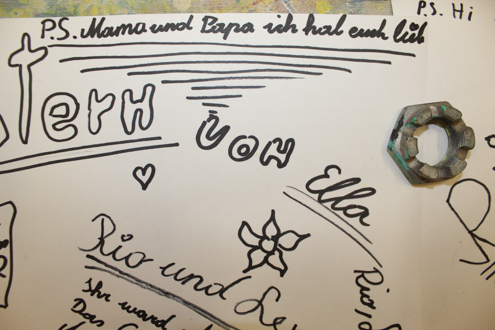 P.S. Mama und Papa ich hab euch lüb
P.S. Hi
stern
von
Ella
Rio und
Ihr ward
Das